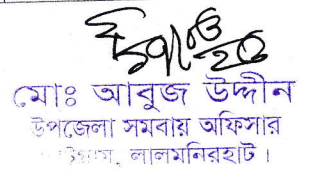 মোঃ আবুজ উদ্দীন
উপজেলা সমবায় অফিসার
লালমনিরহাট।